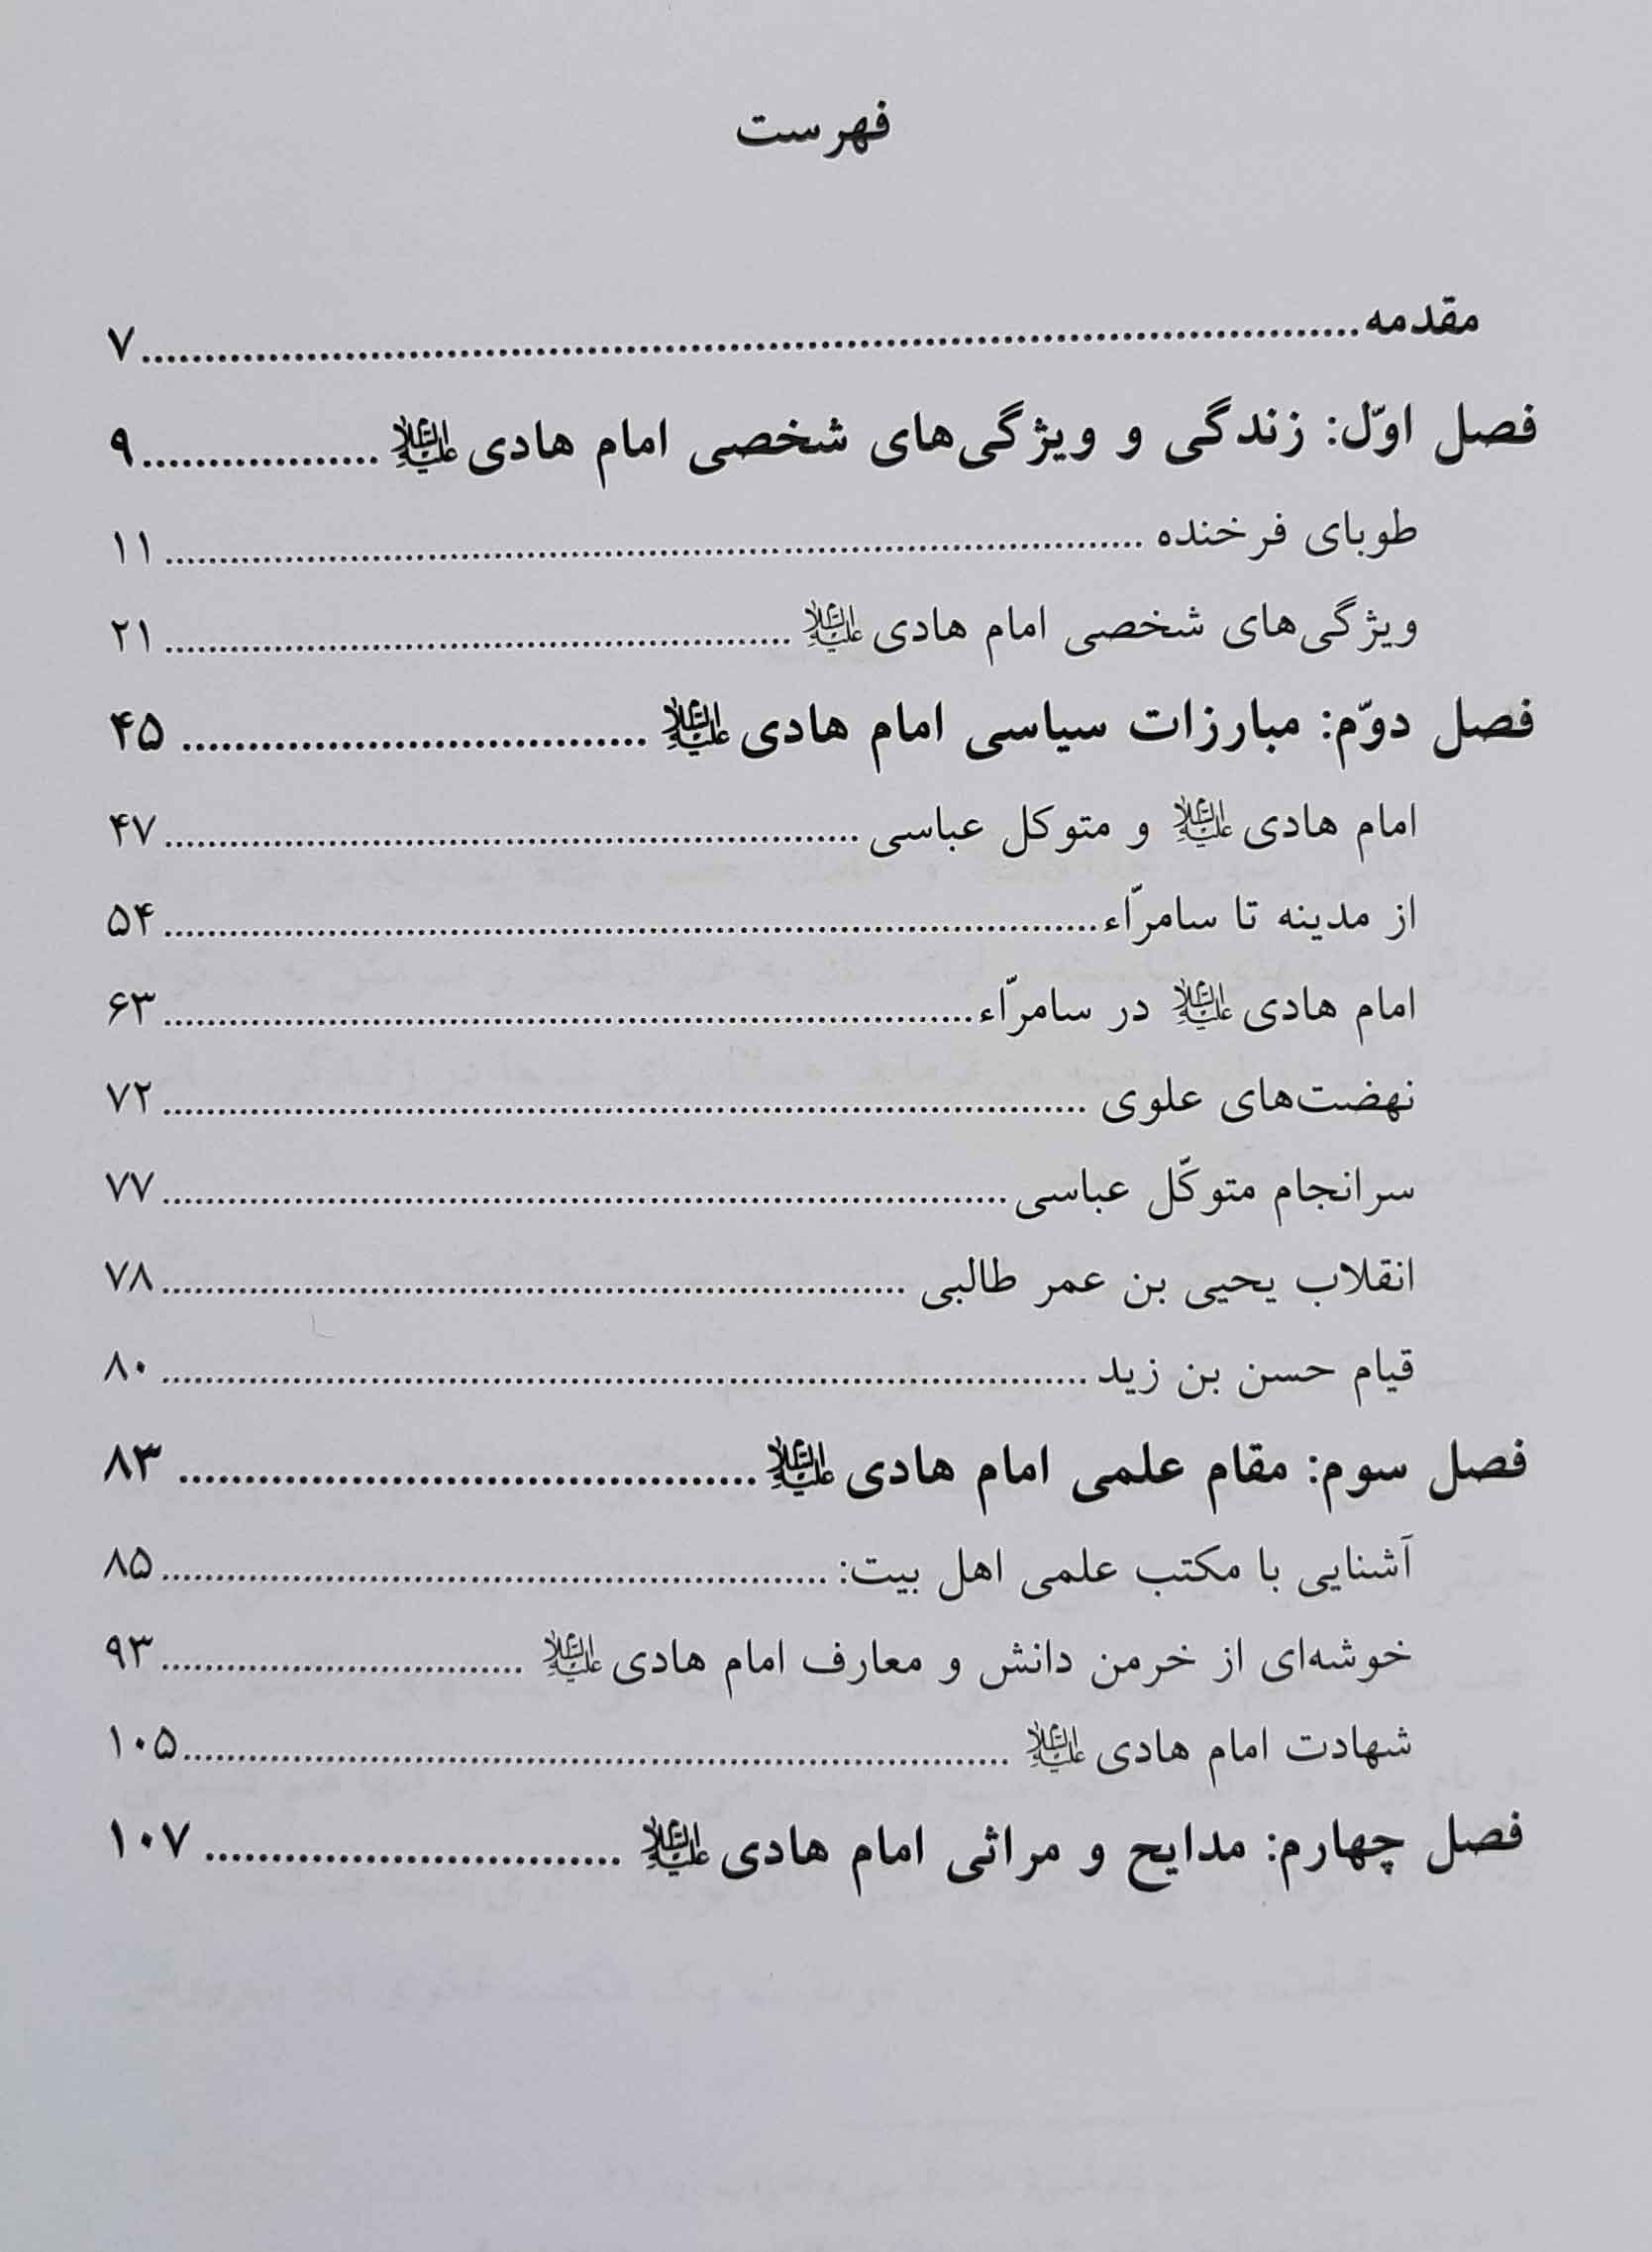 فهرست
مقدمه ........ ۷
فصل اوّل: زندگی و ویژگی‌های شخصی امام هادی علیه‌السلام ........ ۹
طوبای فرخنده ........ ۱۱
ویژگی‌های شخصی امام هادی علیه‌السلام ........ ۲۱
فصل دوّم: مبارزات سیاسی امام هادی علیه‌السلام ........ ۴۵
امام هادی علیه‌السلام و متوکل عباسی ........ ۴۷
از مدینه تا سامرّاء ........ ۵۴
امام هادی علیه‌السلام در سامرّاء ........ ۶۳
نهضت‌های علوی ........ ۷۲
سرانجام متوکّل عباسی ........ ۷۷
انقلاب یحیی بن عمر طالبی ........ ۷۸
قیام حسن بن زید ........ ۸۰
فصل سوم: مقام علمی امام هادی علیه‌السلام ........ ۸۳
آشنایی با مکتب علمی اهل بیت: ........ ۸۵
خوشه‌ای از خرمن دانش و معارف امام هادی علیه‌السلام ........ ۹۳
شهادت امام هادی علیه‌السلام ........ ۱۰۵
فصل چهارم: مدایح و مراثی امام هادی علیه‌السلام ........ ۱۰۷